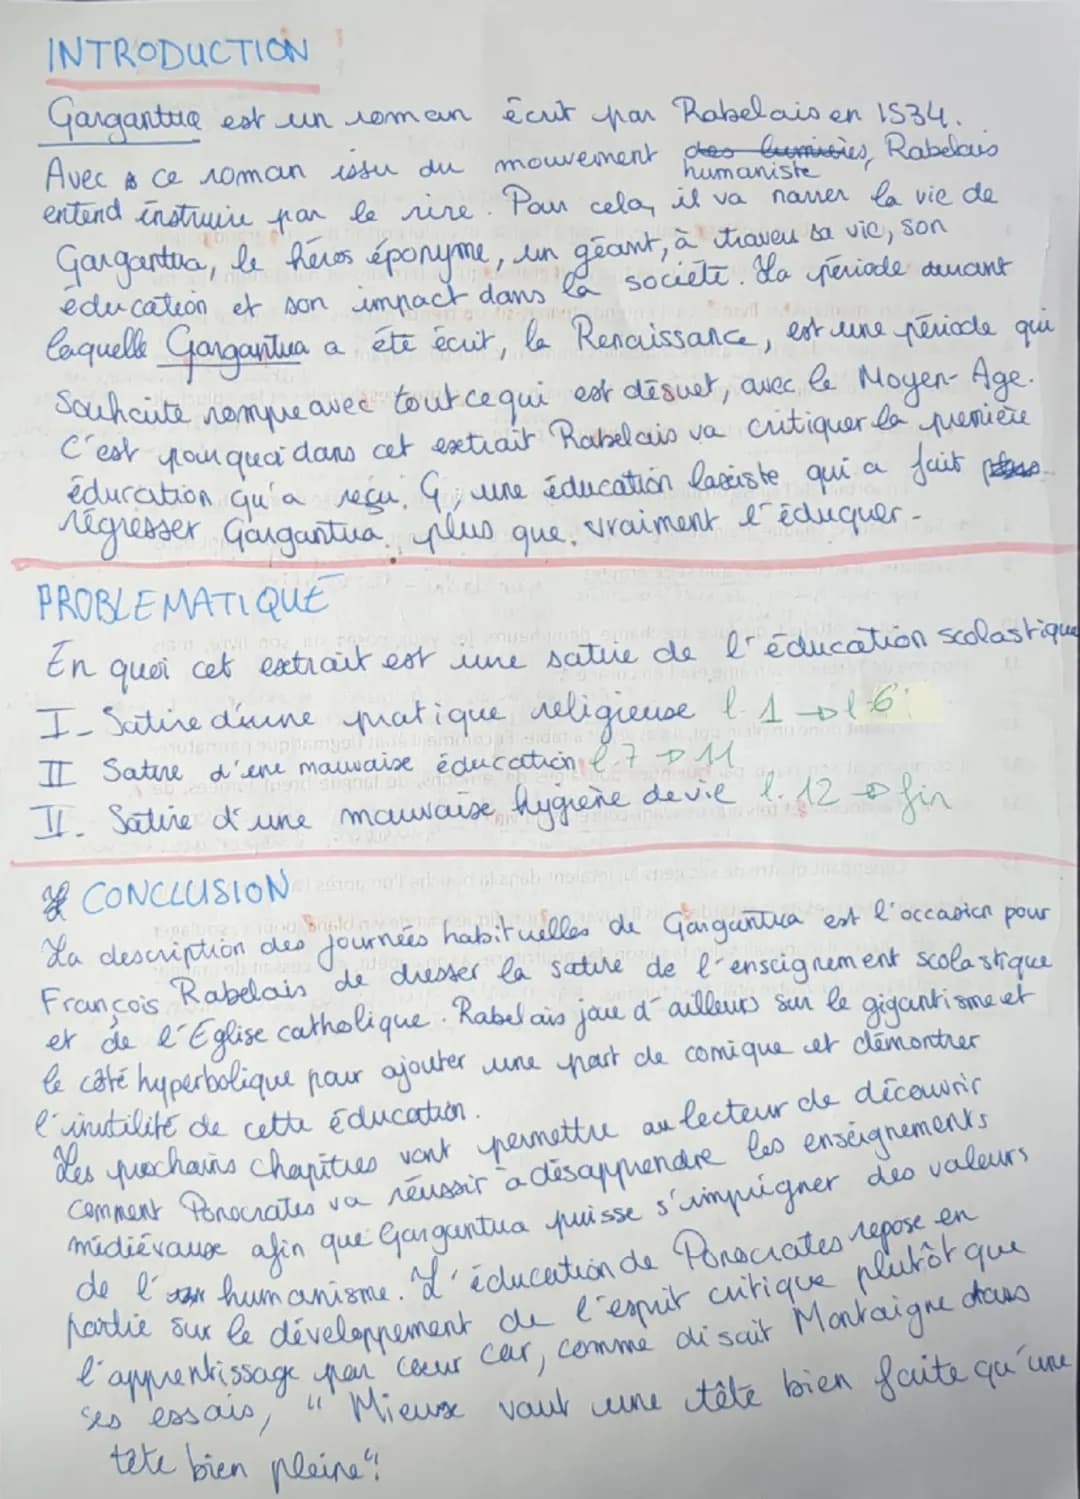 INTRODUCTION
Gargantua est un roman écrit par Rabelais en 1534.
Avec ce roman issu du mouvement des lumières, Rabelais
humaniste
entend instruire par le rire. Pour cela, il va narrer la vie de
Gargantua, le héros éponyme, un géant, à travers sa vie, son
éducation et son impact dans la société. La période durant
laquelle Gargantua a été écrit, la Renaissance, est une période qui
souhaite rompre avec tout ce qui est désuet, avec le Moyen-Age.
C'est pourquoi dans cet extrait Rabelais va critiquer la première
éducation qu'a reçu G; une éducation laxiste qui a fait plus
régresser Gargantua plus que vraiment l'éduquer.
PROBLEMATIQUE
En quoi cet extrait est une satire de l'éducation scolastique
I - Satire d'une pratique religieuse l.1 → l.6
II Satire d'une mauvaise éducation l.7 → 11
II - Satire d'une mauvaise hygiène de vie l.12 → fin
CONCLUSION
La description des journées habituelles de Gargantua est l'occasion pour
François Rabelais de dresser la satire de l'enseignement scolastique
et de l'Eglise catholique. Rabelais joue d'ailleurs sur le gigantisme et
le côté hyperbolique pour ajouter une part de comique et démontrer
l'inutilité de cette éducation.
Les prochains chapitres vont permettre au lecteur de découvrir
comment Ponocrates va réussir à désapprendre les enseignements
médiévaux afin que Gargantua puisse s'imprégner des valeurs
de l' humanisme. L'éducation de Ponocrates repose en
partie sur le développement de l'esprit critique plutôt que
l'apprentissage par cœur car, comme disait Montaigne dans
ses essais, "Mieux vaut une tête bien faite qu'une
tête bien pleine".